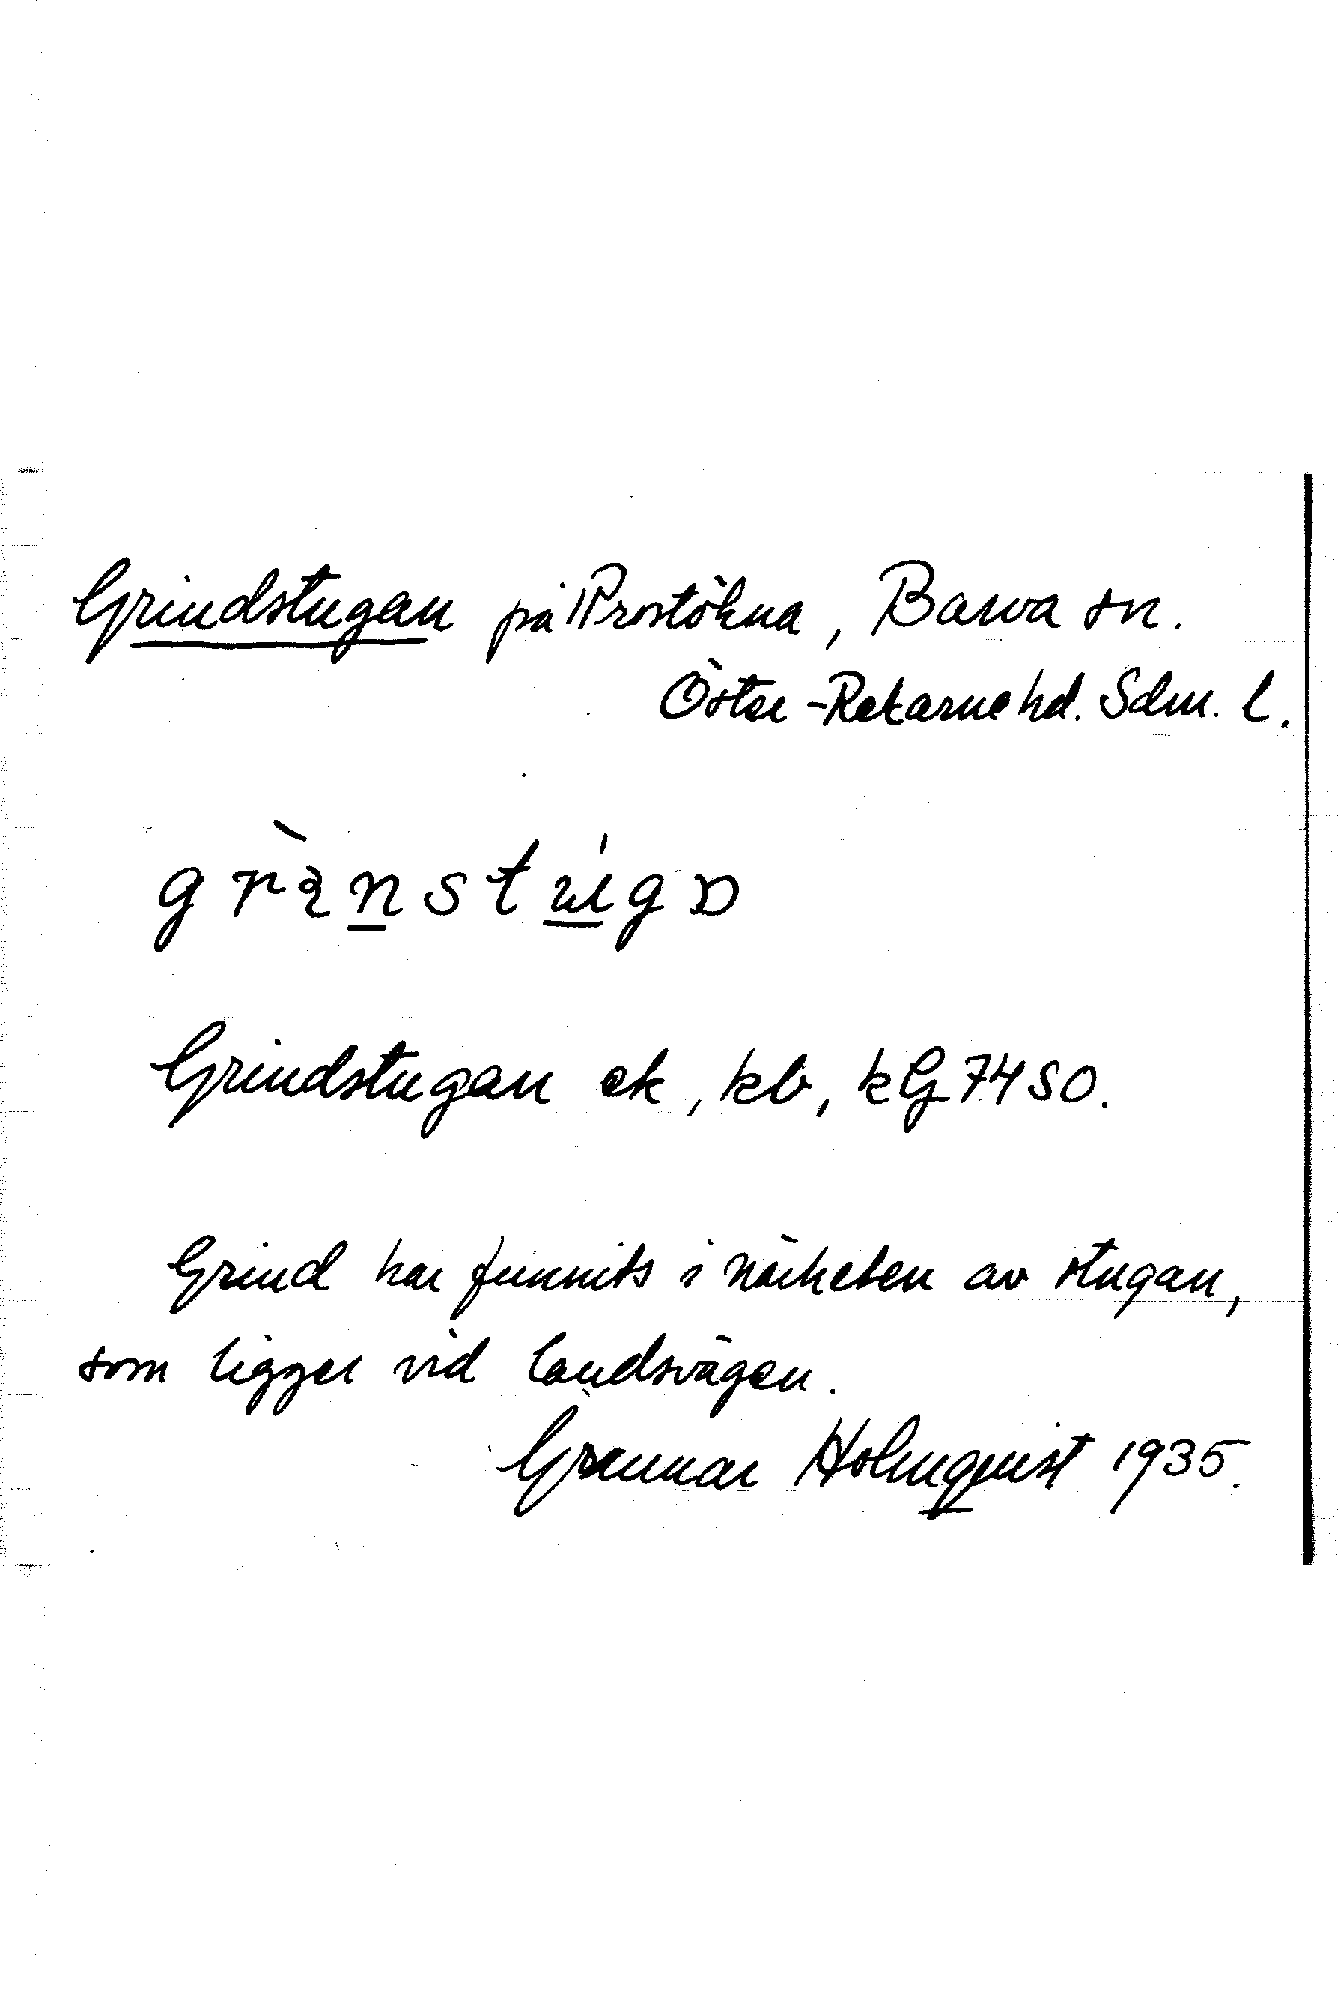 Grindstugan på Prostökna, Barva sn.
Öster-Rekarne hd. Södm. l.
Grindstugan ek, kb, kG 74 SO.
Grind har funnits i närheten av stugan,
som ligger vid landsvägen.
Gunnar Holmquist 1935.